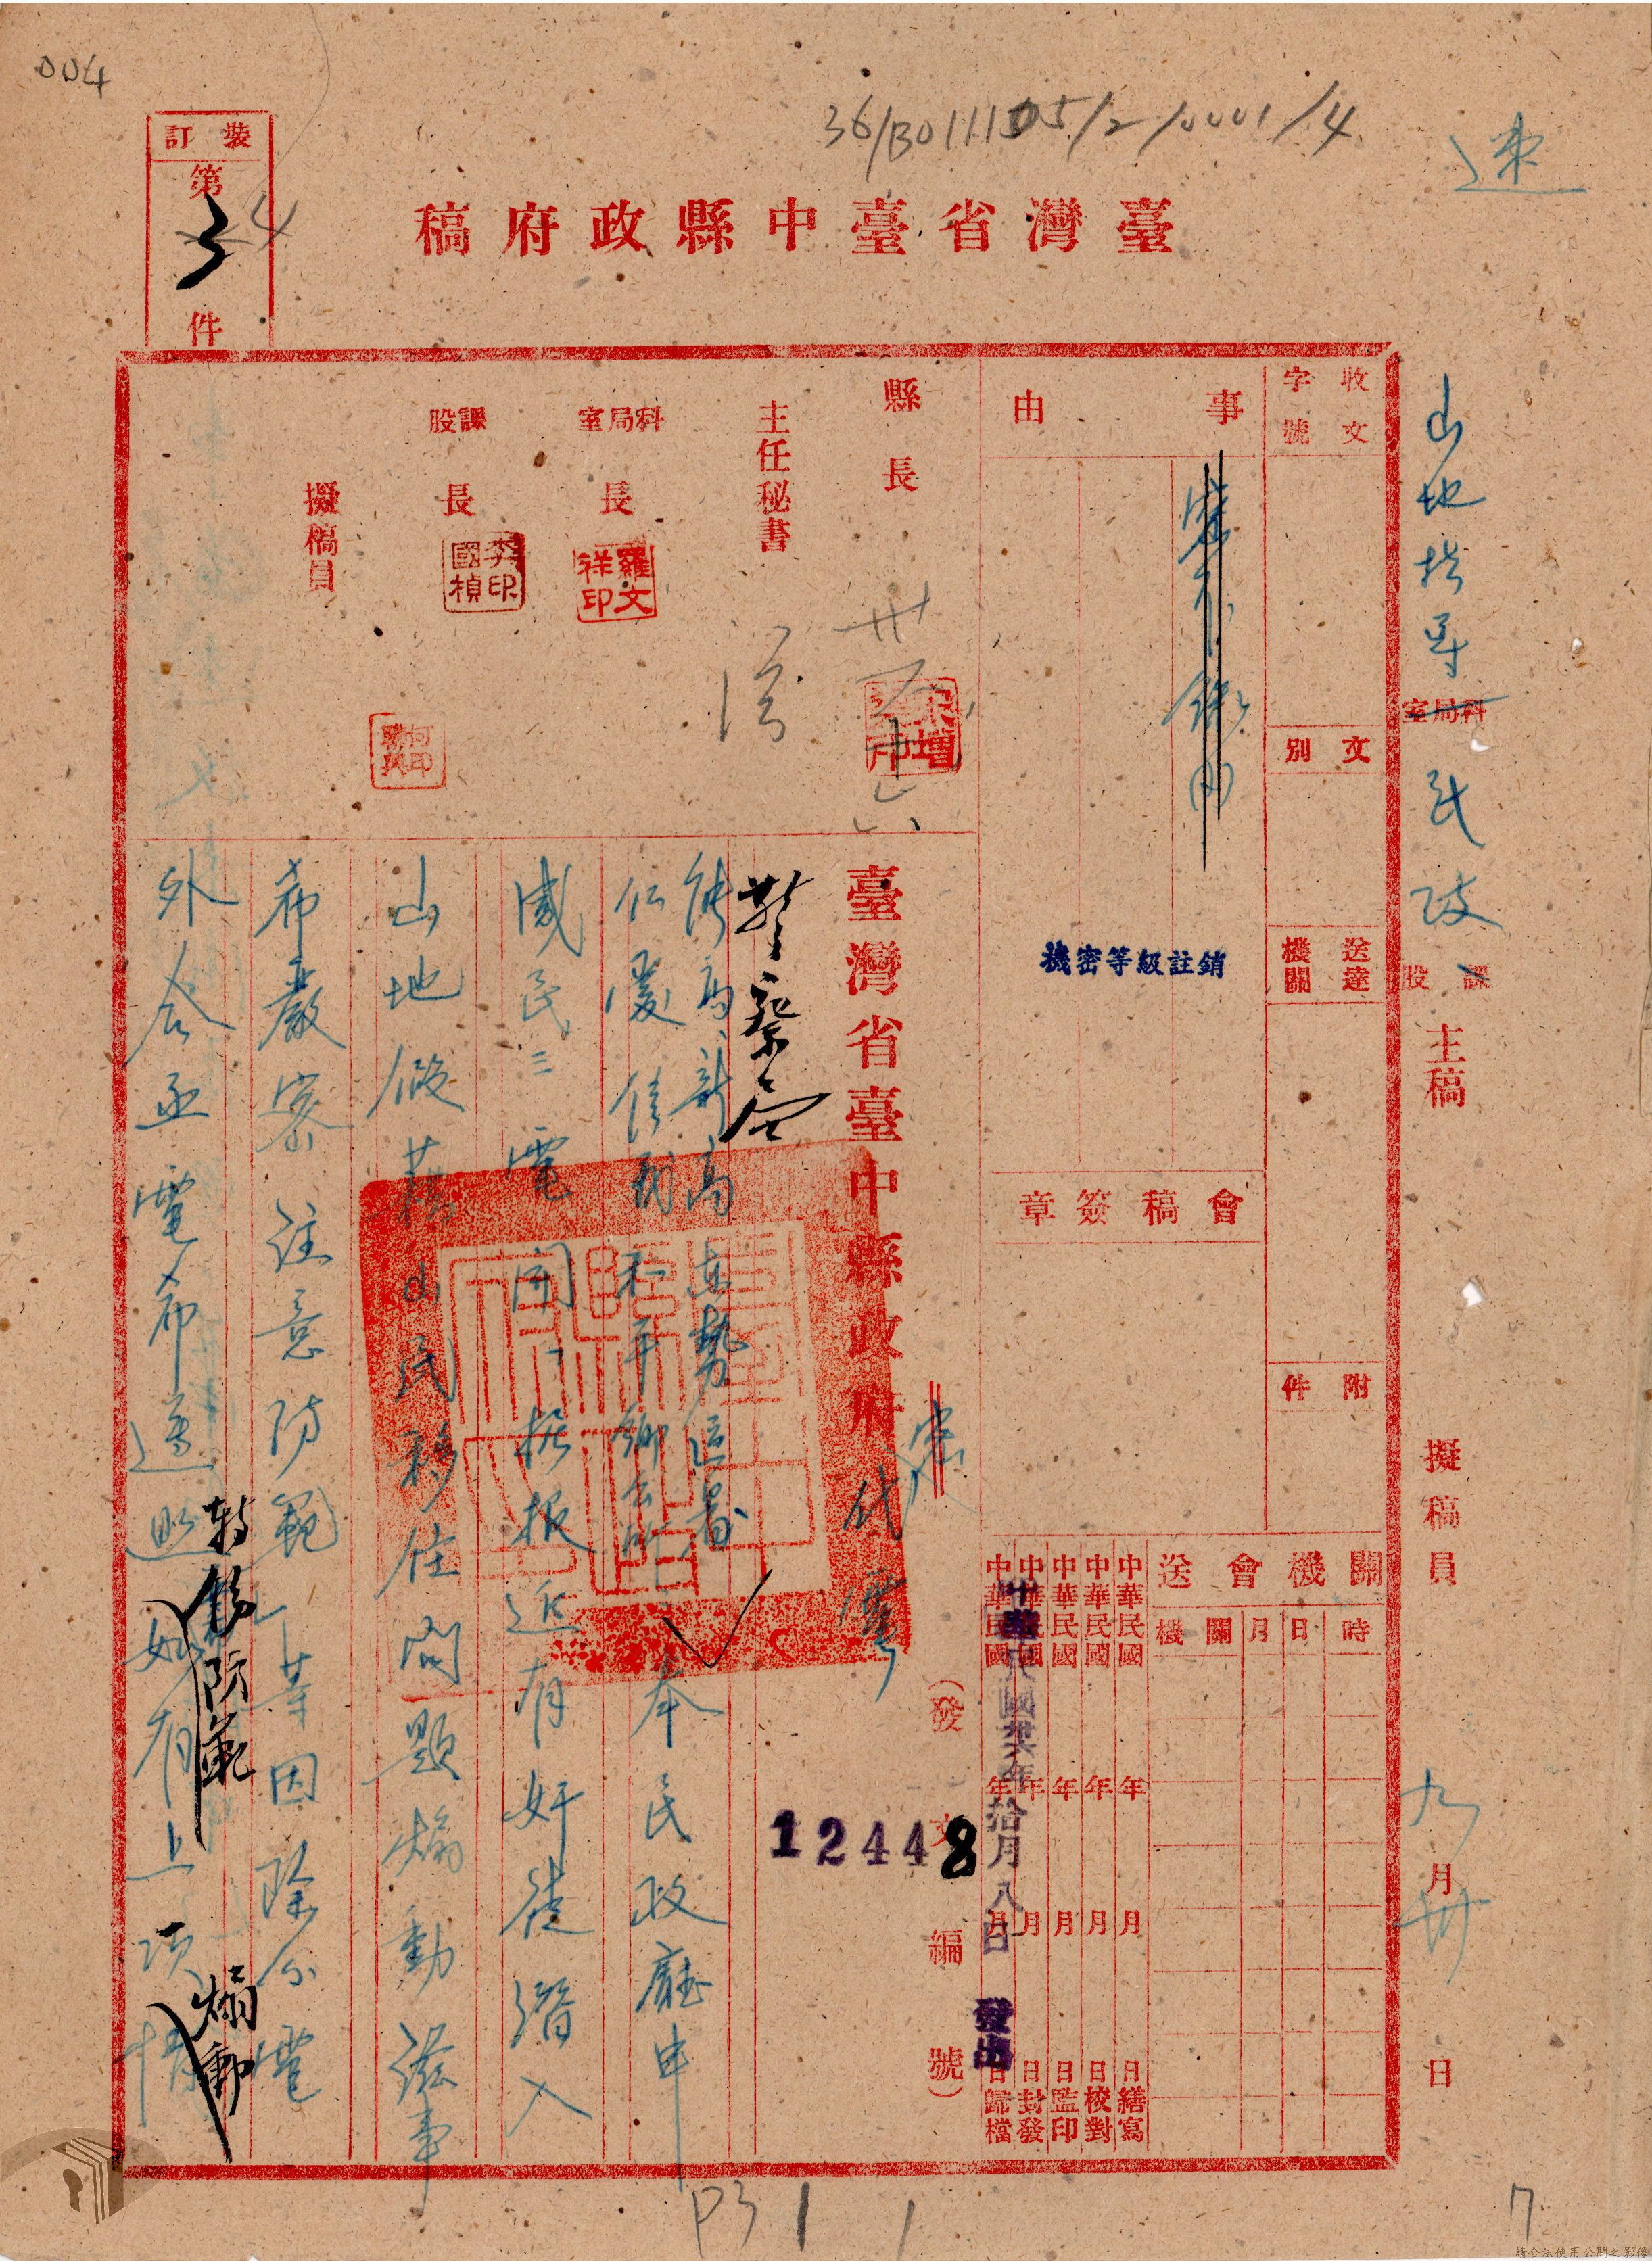 004
36/B0111105/2/0001/4
速
裝訂
第
3
4
件
臺灣省臺中縣政府稿
山地指導
科局室
民政
課股
主稿
擬稿員
九月卅日
收文字號
文別
送達機關
附件
事由
密不錄由
機密等級註銷
會稿簽章
送會機關
機關
月
日
時
中華民國 年 月 日繕寫
中華民國 年 月 日校對
中華民國 年 月 日監印
中華民國 年 月 日封發
中華民國 年 月 日歸檔
中華民國卅六年拾月八日
發出
縣長
主任秘書
科局室長
羅文祥印
課股長
李國楨印
擬稿員
臺灣省臺中縣政府代電
密
(發文編號)
12448
警察局
能高、新高、東勢區署
仁愛、信義、和平鄉公所
奉民政廳申
感民三電開「據報近有奸徒潛入
山地假藉山民移住問題煽動滋事
希嚴密注意防範」等因除分電
外合亟電希遵照如有上項情
轉飭防範
煽動
P31
7
請合法使用公開之影像